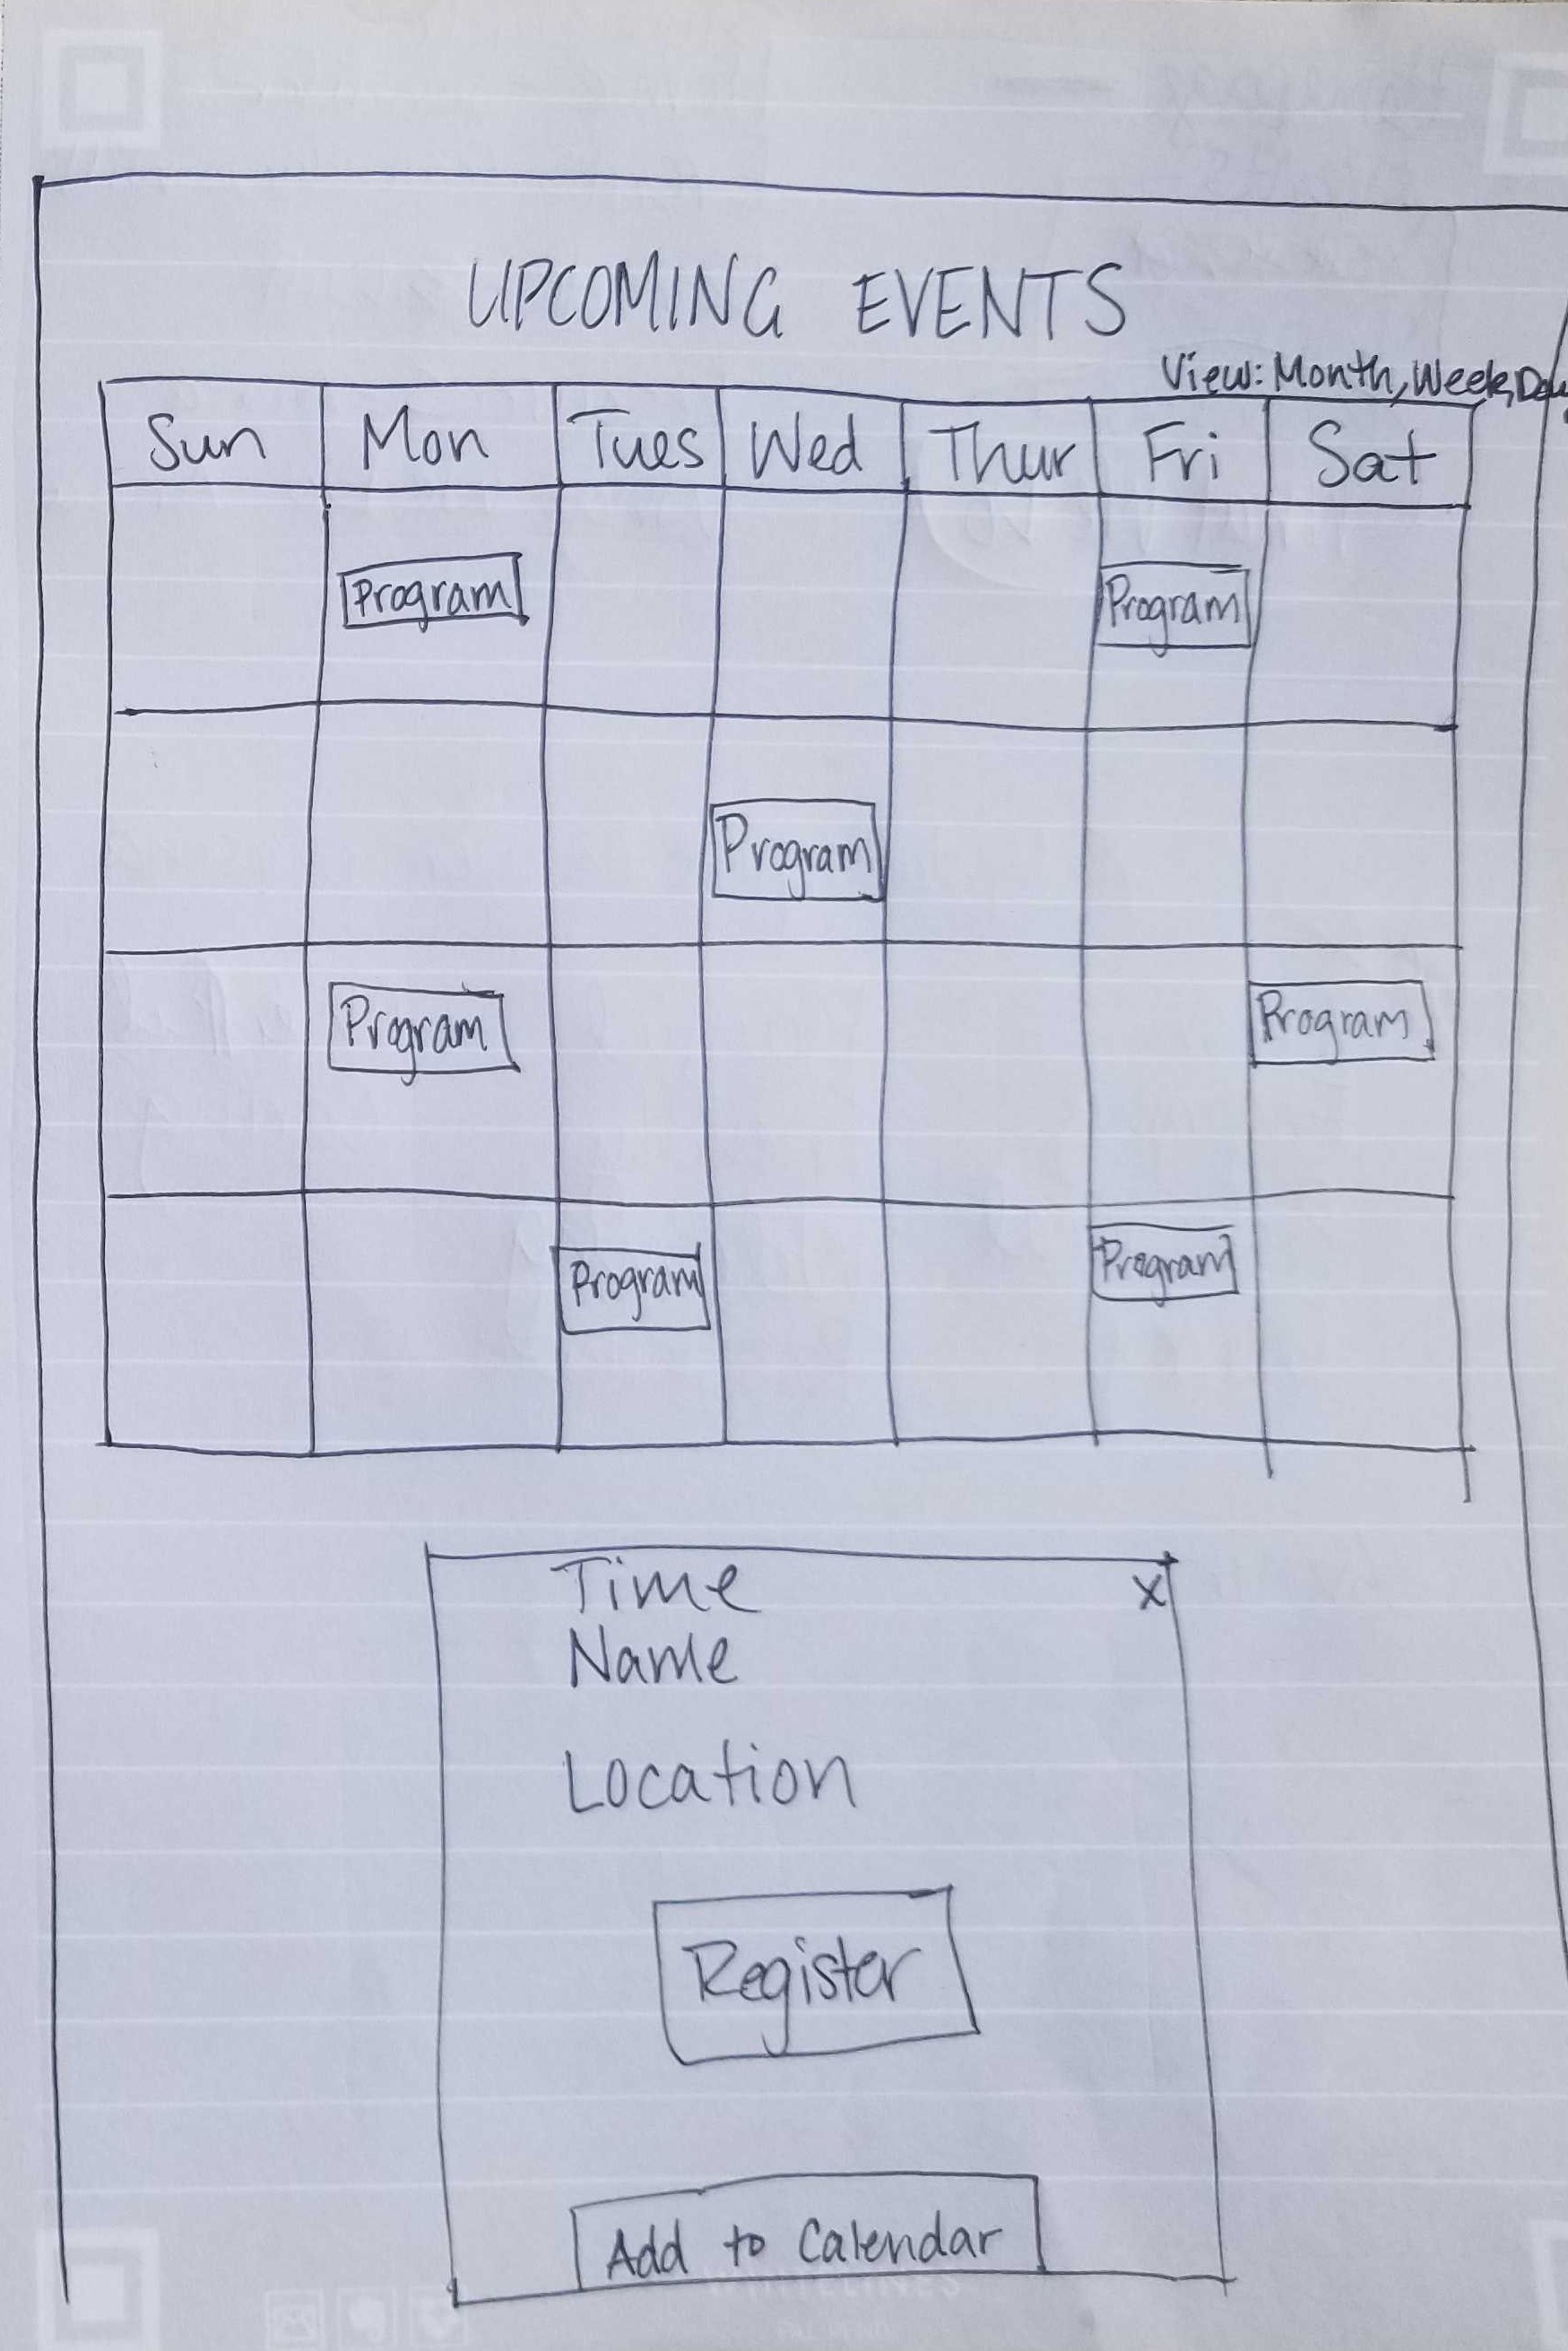 UPCOMING EVENTS
View: Month, Week, Day
Sun Mon Tues Wed Thur Fri Sat
Program Program
Program
Program Program
Program Program
Time X
Name
Location
Register
Add to Calendar